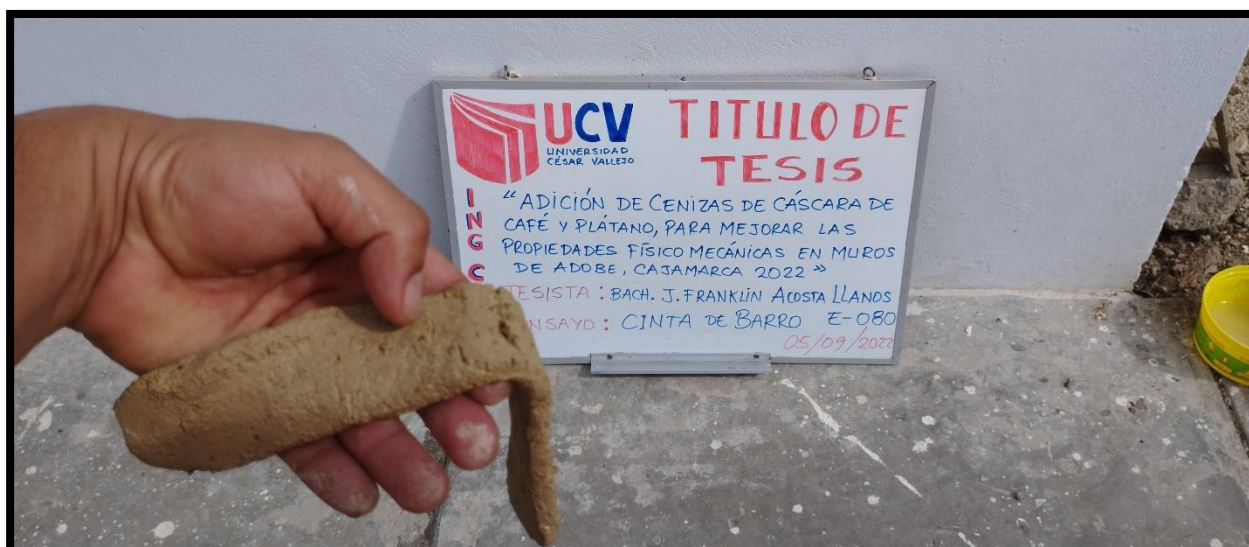 UCV
UNIVERSIDAD
CÉSAR VALLEJO
TITULO DE
TESIS
ING C
"ADICIÓN DE CENIZAS DE CÁSCARA DE
CAFÉ Y PLÁTANO, PARA MEJORAR LAS
PROPIEDADES FÍSICO MECÁNICAS EN MUROS
DE ADOBE, CAJAMARCA 2022"
TESISTA : BACH. J. FRANKLIN ACOSTA LLANOS
NSAYO : CINTA DE BARRO E-080
05/09/2022